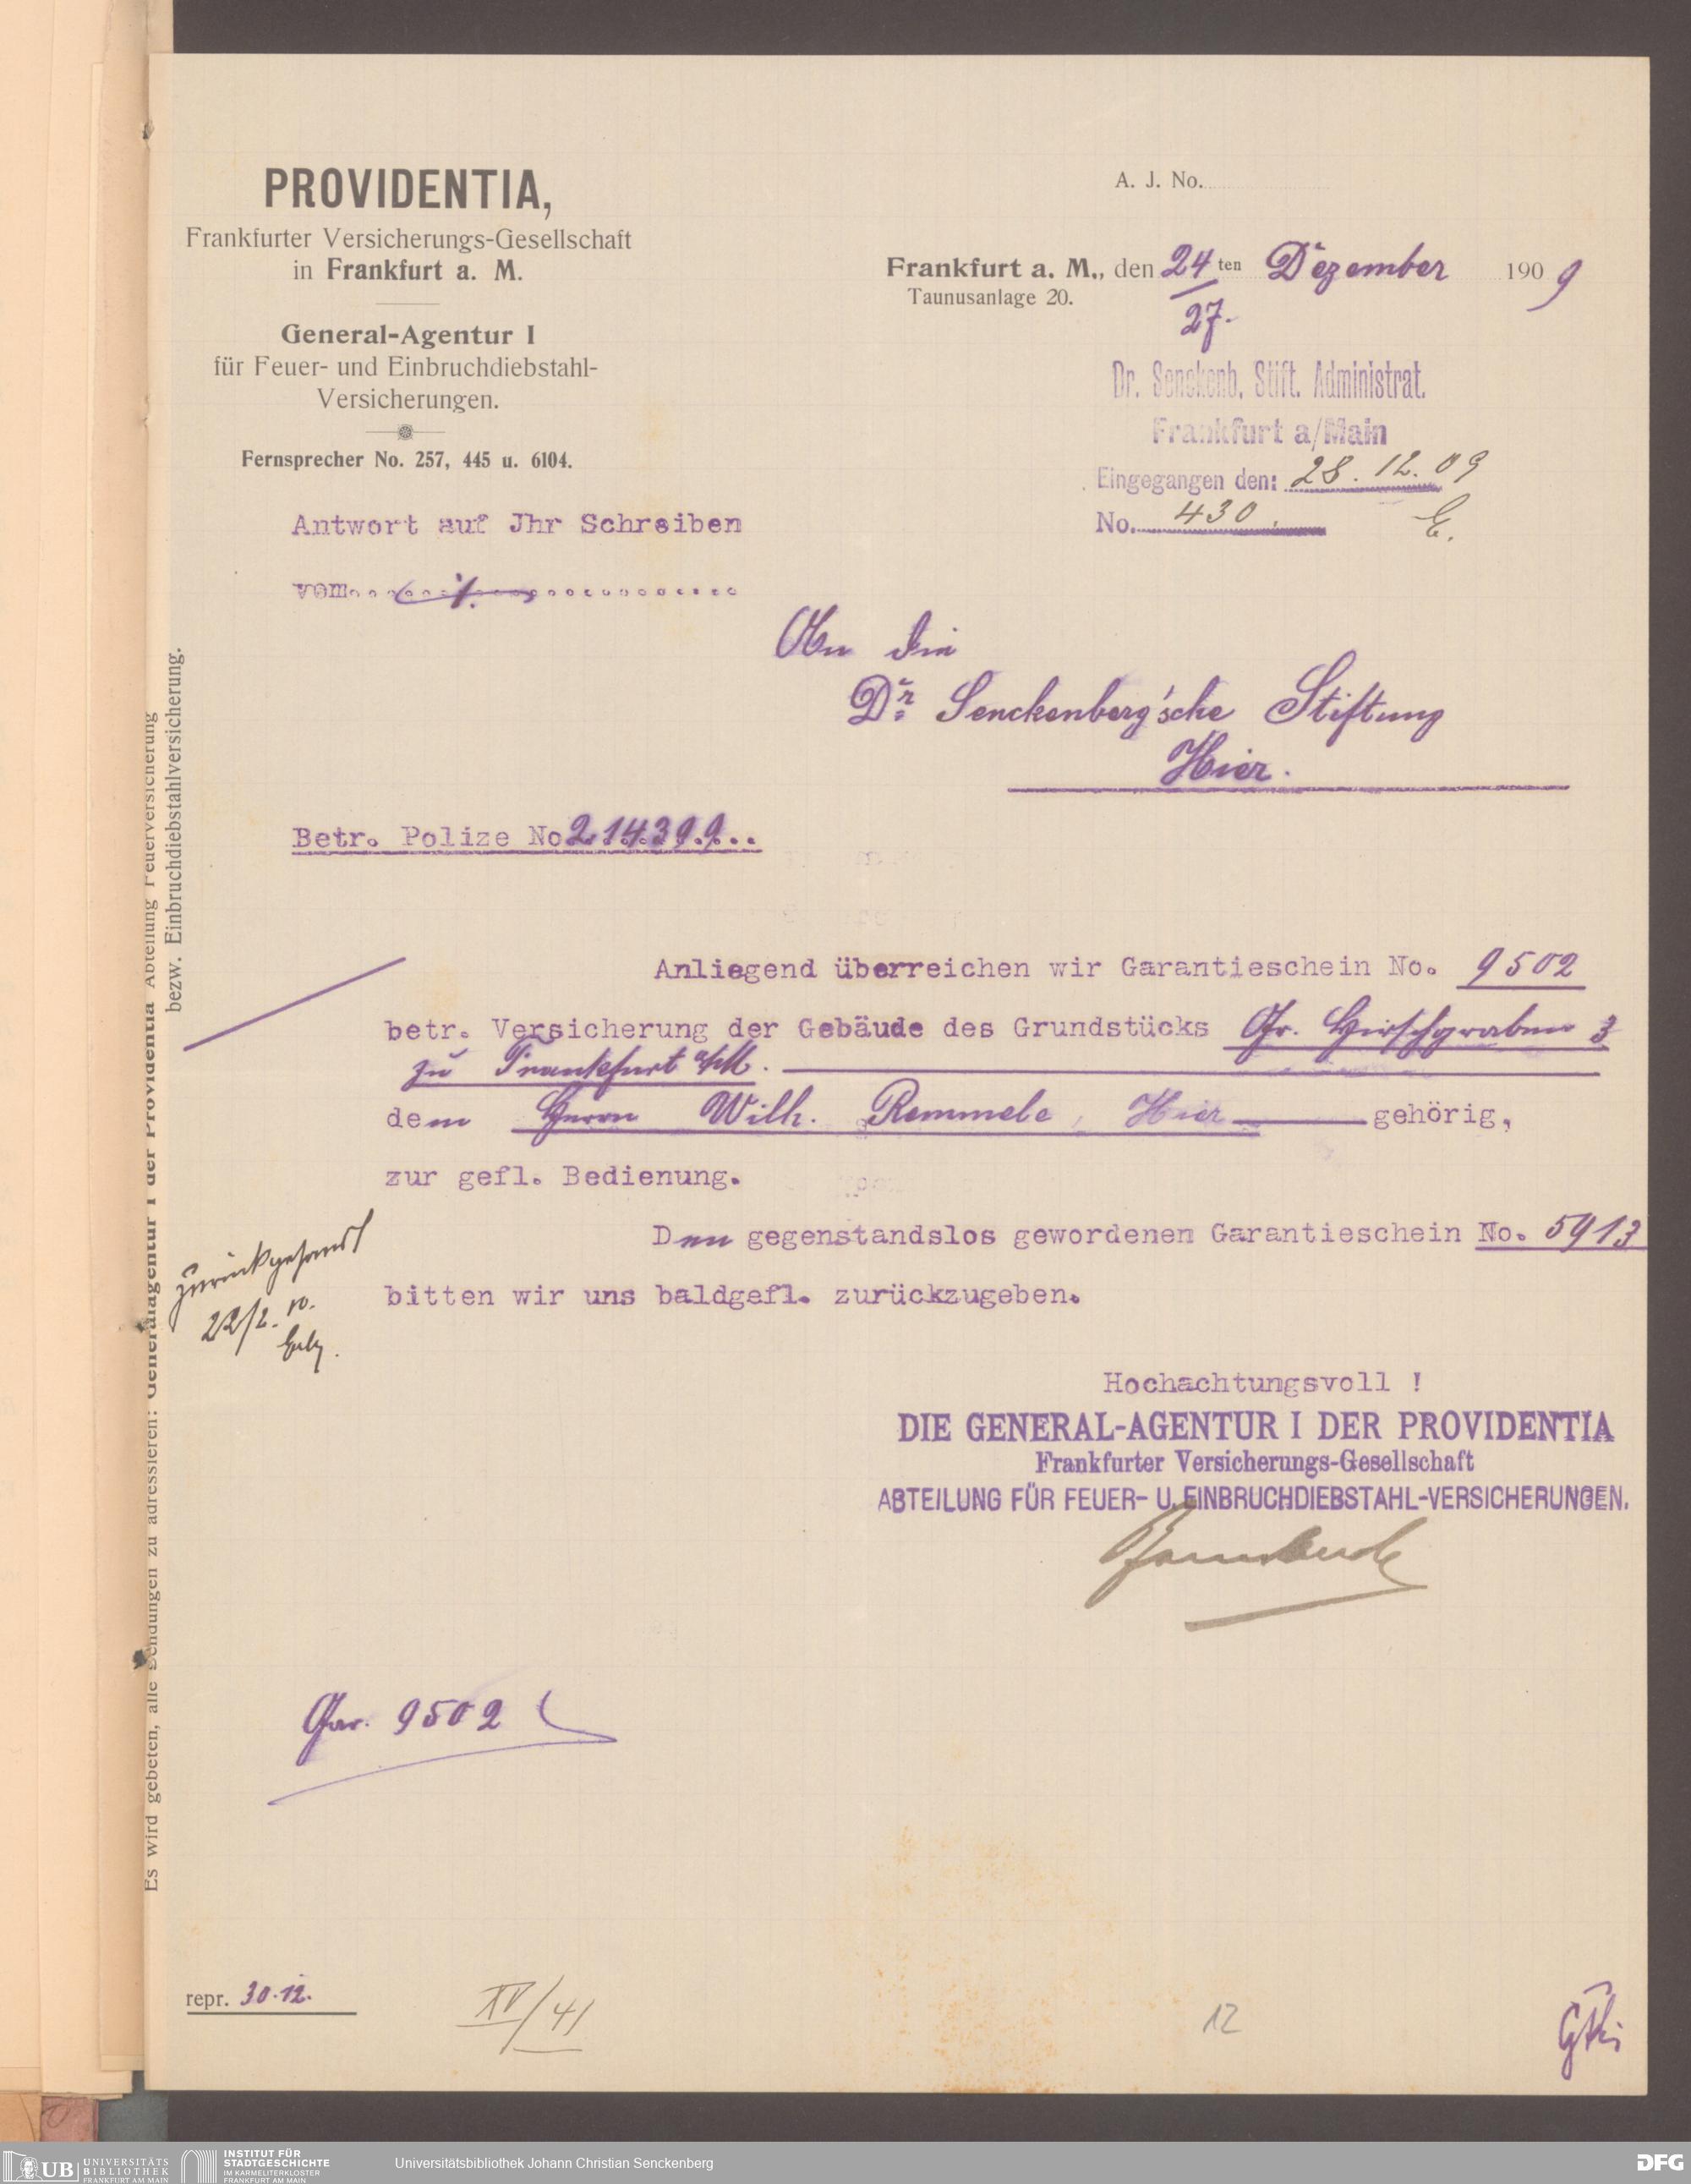 PROVIDENTIA,
Frankfurter Versicherungs-Gesellschaft
in Frankfurt a. M.
General-Agentur I
für Feuer- und Einbruchdiebstahl-
Versicherungen.
Fernsprecher No. 257, 445 u. 6104.
A. J. No.
Frankfurt a. M., den 24 ten Dezember 1909
Taunusanlage 20.
27.
Dr. Senckenb. Stift. Administrat.
Frankfurt a/Main
Eingegangen den: 28. 12. 09
No. 430.
Antwort auf Jhr Schreiben
vom
An die
Dr. Senckenberg'sche Stiftung
Hier.
Betr. Polize No 214399
Anliegend überreichen wir Garantieschein No. 9502
betr. Versicherung der Gebäude des Grundstücks Gr. Hirschgraben 3
zu Frankfurt a/M.
dem Herrn Wilh. Remmele, Hier gehörig,
zur gefl. Bedienung.
Den gegenstandslos gewordenen Garantieschein No. 5913
bitten wir uns baldgefl. zurückzugeben.
zurückgesandt
22/2. 10.
Hochachtungsvoll !
DIE GENERAL-AGENTUR I DER PROVIDENTIA
Frankfurter Versicherungs-Gesellschaft
ABTEILUNG FÜR FEUER- U. EINBRUCHDIEBSTAHL-VERSICHERUNGEN.
Gar. 9502
repr. 30.12.
XV/41
12
Es wird gebeten, alle Sendungen zu adressieren: Generalagentur I der Providentia Abteilung Feuerversicherung
bezw. Einbruchdiebstahlversicherung.
UB UNIVERSITÄTS
BIBLIOTHEK
FRANKFURT AM MAIN
INSTITUT FÜR
STADTGESCHICHTE
IM KARMELITERKLOSTER
FRANKFURT AM MAIN
Universitätsbibliothek Johann Christian Senckenberg
DFG